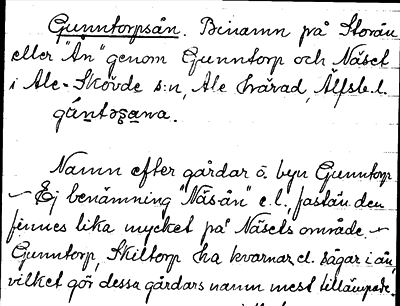 Gunntorpsån. Binamn på Storån
eller "Ån" genom Gunntorp och Näset
i Ale-Skövde s:n, Ale härad, Älfsb.l.
Namn efter gårdar o. byn Gunntorp
— Ej benämning "Näsån" e.l., fastän den
finnes lika mycket på Näsets område. —
Gunntorp, Skiltorp ha kvarnar el. sågar i ån,
vilket gör dessa gårdars namn mest tillämpade.